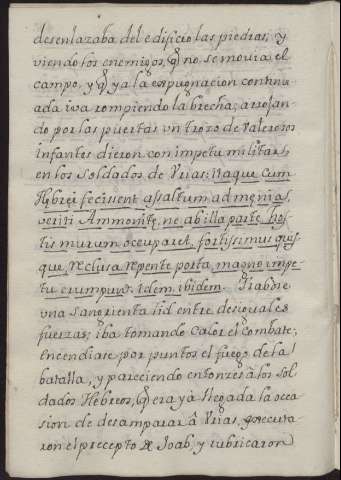 desenlazaba del edificio las piedras, y
viendo los enemigos, q̃ no se movia el
campo, y q̃ ya la expugnacion continu
ada iva rompiendo la brecha; arrojan
do por las puertas un trozo de valerosos
infantes dieron con impetu militar
en los soldados de Urias: Itaque cum
Hębrei fecissent assaltum ad męnia,
veriti Ammonitę, ne ab illa parte hos
tis murum occuparet, fortissimus quis
que, reclusa repente porta, magno impe
tu erumpunt. Idem ibidem. Trabose
una sangrienta lid entre desiguales
fuerzas; iba tomando calor el combate;
encendiase por puntos el fuego de la
batalla, y pareciendo entonzes à los sol
dados Hebreos, q̃ era yà llegada la occa
sion de desamparar â Urias, executa
ron el precepto de Joab, y rubricaron